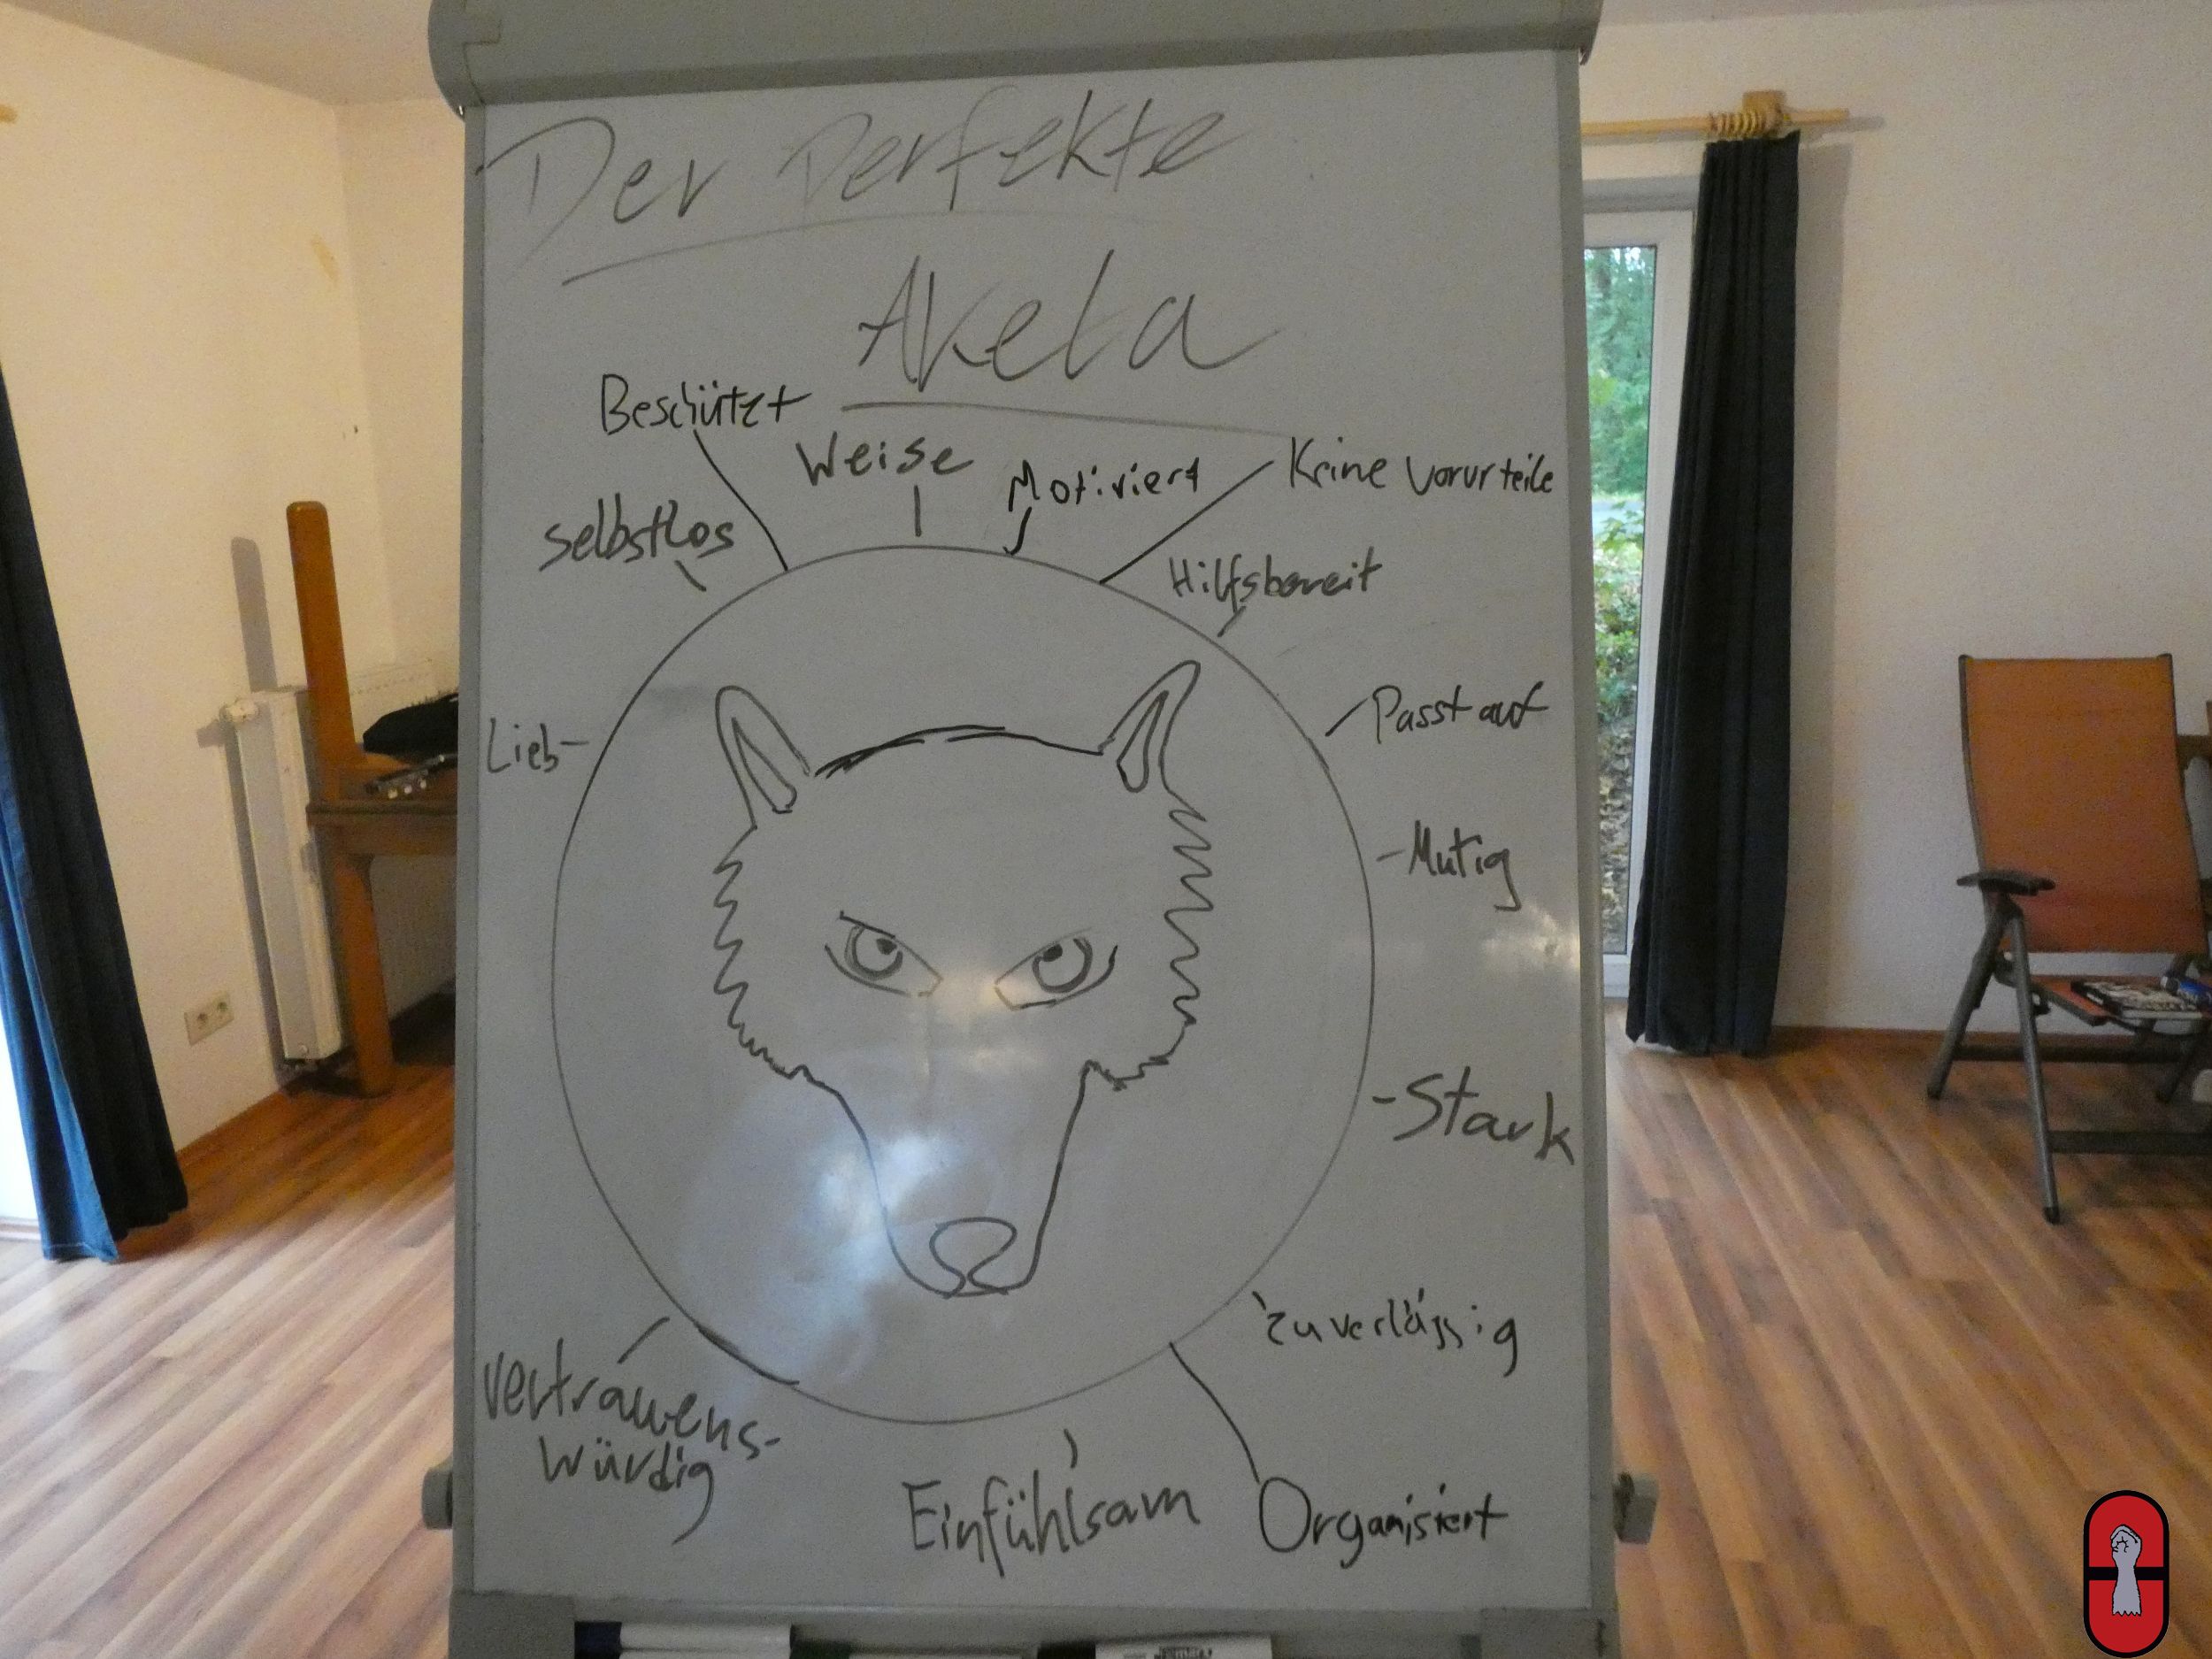 Der Perfekte
Akela
Beschützt
Weise
Motiviert
Keine Vorurteile
selbstlos
Hilfsbereit
Lieb
Passt auf
Mutig
Stark
Zuverlässig
Vertrauens-
würdig
Einfühlsam
Organisiert